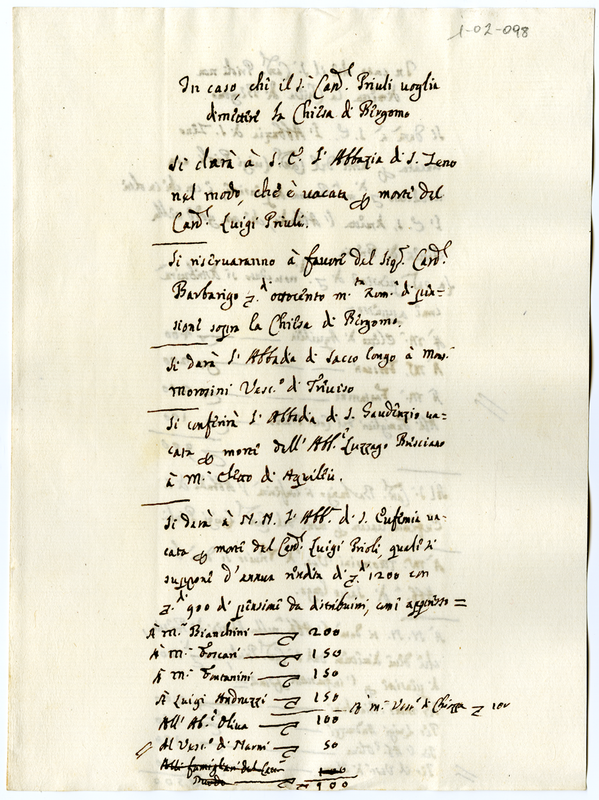 1-02-098
In caso, che il S.r Card.l Priuli voglia
dimettere la Chiesa di Bergomo
Si darà à S. E. l'Abbazia di S. Zeno
nel modo, che è vacata p morte del
Card.l Luigi Priuli.
Si riservaranno à favore del Sig.r Card.l
Barbarigo z.di ottocento m.ta Rom.a di pen-
sione sopra la Chiesa di Bergomo.
Si darà l'Abbadia di Sacco longo à Mons.r
Morosini Vesc.o di Treviso
Si conferirà l'Abbadia di S. Gaudenzio va-
cata p morte dell'Abb.e Luzzago Bresciano
à M.r di Aquileia.
Si darà à N.N. l'Abb.a di S. Eufemia va-
cata p morte del Card.l Luigi Prioli, quale si
suppone d'annua rendita di z.di 1200 con
z.di 900 di pensioni da distribuirsi, come appresso =
À M.r Bianchini 200
À M.r Foscari 150
À M.r Fontanini 150
À Luigi Andruzzi 150
À M.r Vesc.o di Chiozza z 100
All'Ab.e Oliva 100
Al Vesc.o di Narni 50
Alli famigliari del Card.l
100
900